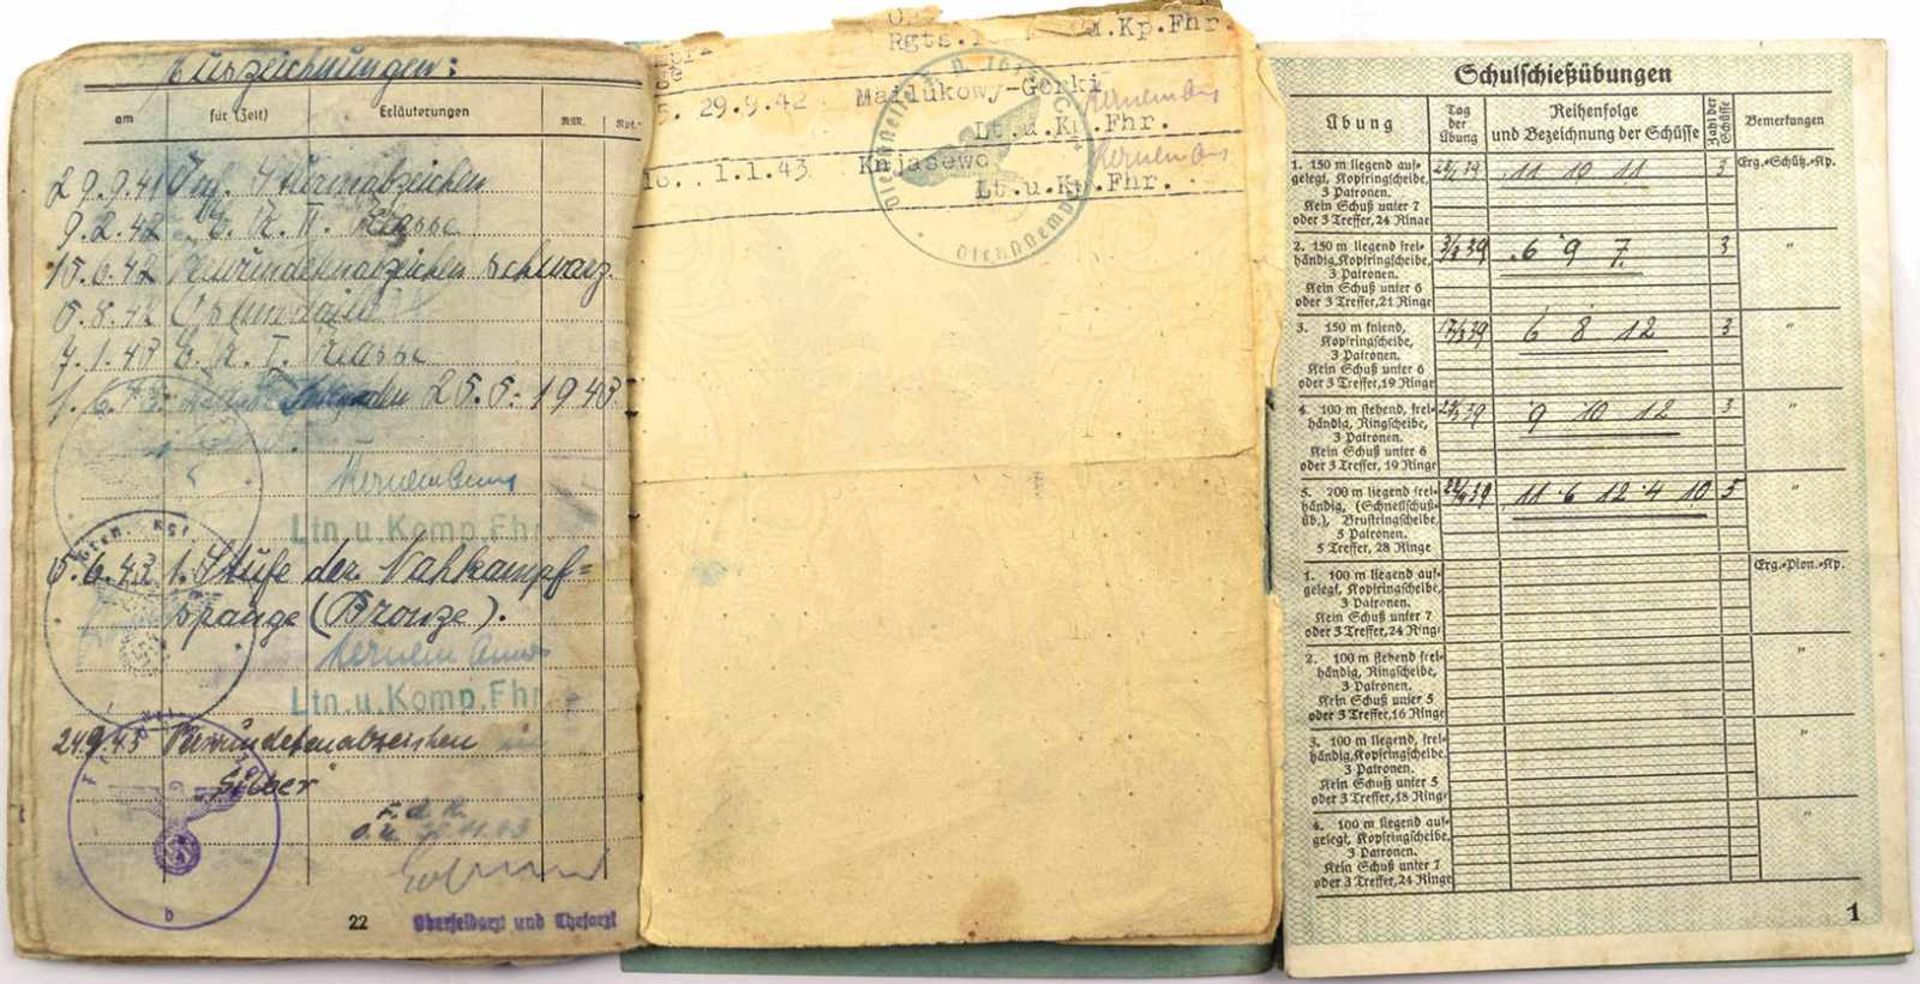 Auszeichnungen:
am für (Zeit) Erläuterungen
29.9.41 Inf. Sturmabzeichen
9.2.42 E. K. II. Klasse
15.6.42 Verwundetenabzeichen schwarz.
5.8.42 Ostmedaille
7.1.43 E. K. I. Klasse
25.5.1943
Ltn.u.Komp.Fhr
5.6.43 1. Stufe der Nahkampf=
spange (Bronze).
Ltn.u.Komp.Fhr
24.9.43 Verwundetenabzeichen in
"Silber"
F. d. R.
22
Oberfeldarzt und Chefarzt
Rgts.
.Kp.Fhr.
5. 29.9.42 Majlukowy-Gorki
Lt.u.Kp.Fhr.
1.1.43 Knjasewo
Lt.u.Kp.Fhr.
Schulschießübungen
Übung
Tag der Übung
Reihenfolge und Bezeichnung der Schüsse
Zahl der Schüsse
Bemerkungen
1. 150 m liegend auf-
gelegt, Kopfringscheibe,
3 Patronen.
Kein Schuß unter 7
oder 3 Treffer, 24 Ringe
11 10 11 3 Erg.-Schütz.-Kp.
2. 150 m liegend frei-
händig, Kopfringscheibe,
3 Patronen.
Kein Schuß unter 6
oder 3 Treffer, 21 Ringe
6 9 7 3 "
3. 150 m kniend,
Kopfringscheibe,
3 Patronen.
Kein Schuß unter 6
oder 3 Treffer, 19 Ringe
6 8 12 3 "
4. 100 m stehend, frei-
händig, Ringscheibe,
3 Patronen.
Kein Schuß unter 6
oder 3 Treffer, 19 Ringe
9 10 12 3 "
5. 200 m liegend frei-
händig, (Schnellschuß-
üb.), Brustringscheibe,
5 Patronen.
5 Treffer, 28 Ringe
11 6 12 4 10 5 "
1. 100 m liegend auf-
gelegt, Kopfringscheibe,
3 Patronen.
Kein Schuß unter 7
oder 3 Treffer, 24 Ringe
Erg.-Pion.-Kp.
2. 100 m stehend frei-
händig, Ringscheibe,
3 Patronen.
Kein Schuß unter 5
oder 3 Treffer, 16 Ringe
"
3. 100 m liegend, frei-
händig, Kopfringscheibe.
3 Patronen.
Kein Schuß unter 5
oder 3 Treffer, 18 Ringe
"
4. 100 m liegend auf-
gelegt, Kopfringscheibe.
3 Patronen.
Kein Schuß unter 7
oder 3 Treffer, 24 Ringe
"
1